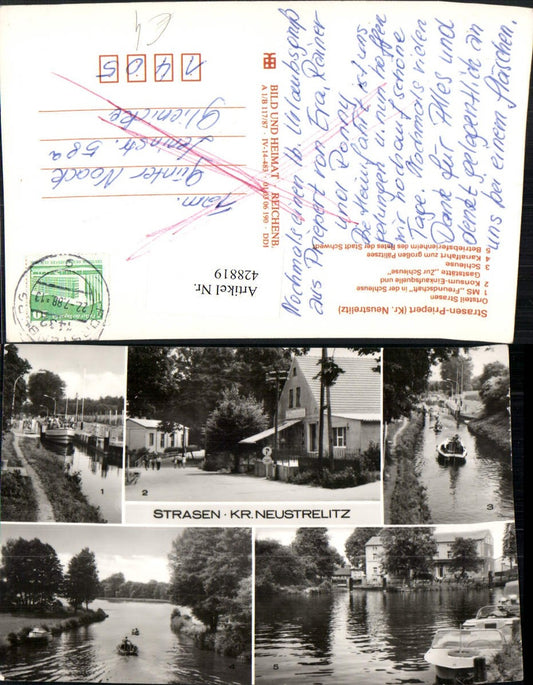 Strasen-Priepert (Kr. Neustrelitz)
Ortsteil Strasen
1 MS „Freundschaft" in der Schleuse
2 Konsum-Einkaufsquelle und
Gaststätte „Zur Schleuse"
3 Schleuse
4 Kanalfahrt zum großen Pälitzsee
5 Betriebsferienheim des Rates der Stadt Schwedt
Nochmals einen lb. Urlaubsgruß
aus Priepert von Eva, Rainer
und Ronny
Die Herauffahrt ist uns
gelungen u. nun hoffen
wir noch auf schöne
Tage. Nochmals vielen
Dank für Alles und
denkt gelegentlich an
uns bei einem Fläschen.
BILD UND HEIMAT REICHENB.
A 1/B 117/87 · IV-14-483 · 01 03 06 190 DDR
Fam.
Günter Noack
Leninstr. 58a
Glienicke
1405
Artikel Nr.
428819
10
22.-7.88-13
1
2
3
STRASEN · KR. NEUSTRELITZ
4
5